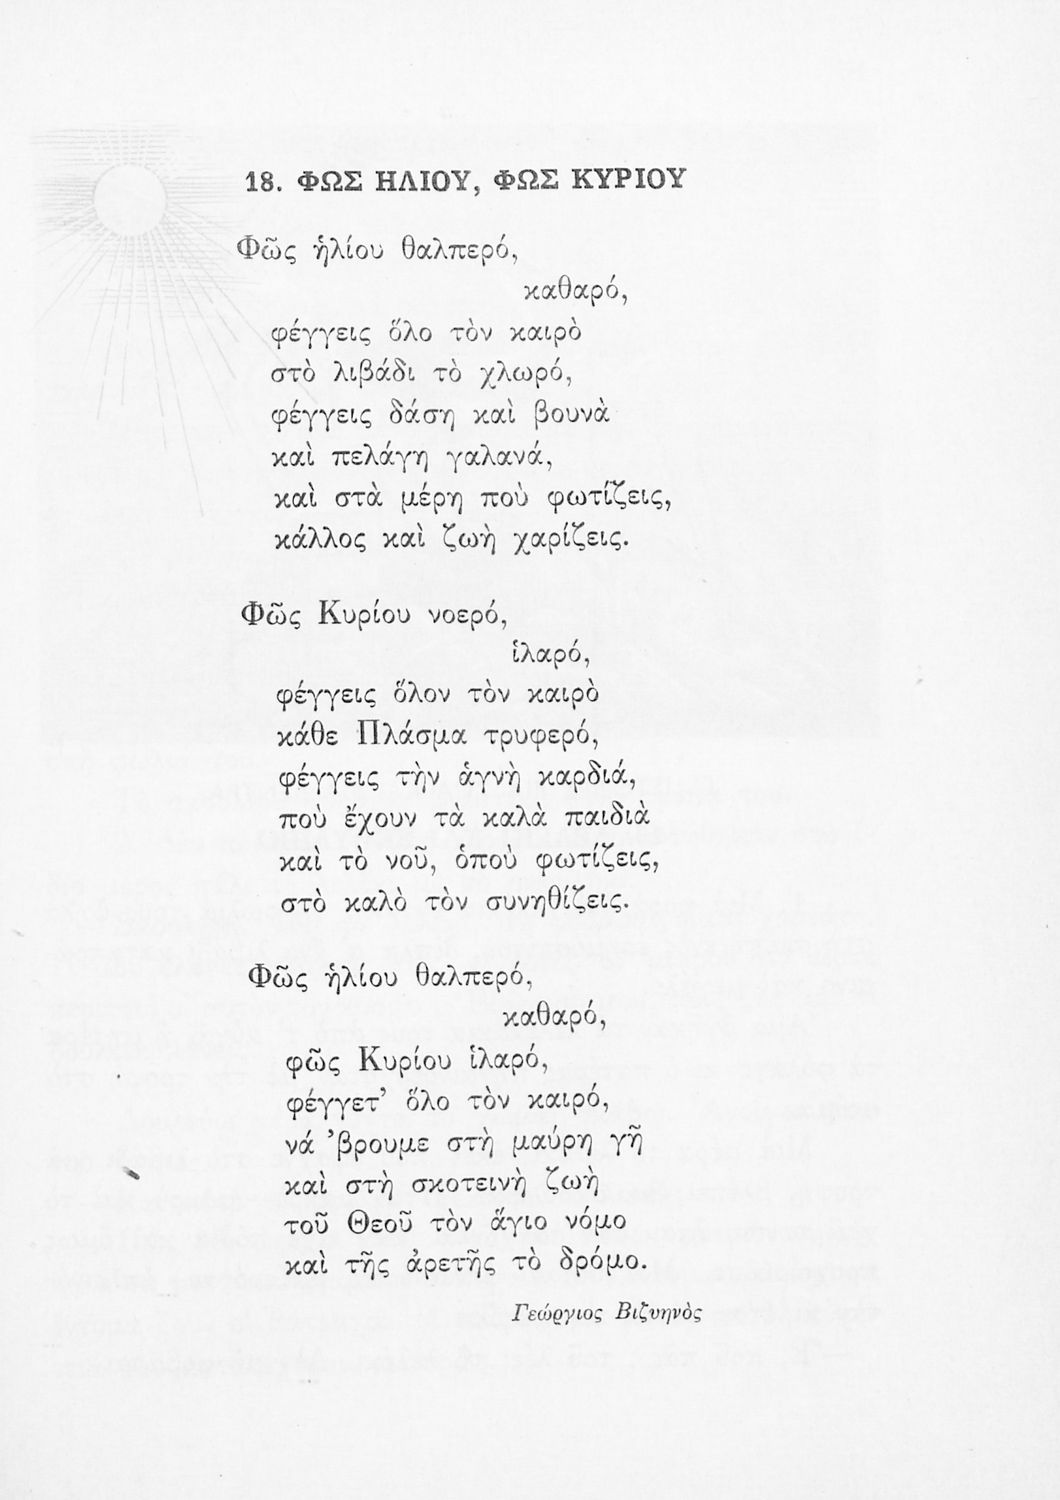 18. ΦΩΣ ΗΛΙΟΥ, ΦΩΣ ΚΥΡΙΟΥ
Φῶς ἡλίου θαλπερό,
καθαρό,
φέγγεις ὅλο τὸν καιρὸ
στὸ λιβάδι τὸ χλωρό,
φέγγεις δάση καὶ βουνὰ
καὶ πελάγη γαλανά,
καὶ στὰ μέρη ποὺ φωτίζεις,
κάλλος καὶ ζωὴ χαρίζεις.
Φῶς Κυρίου νοερό,
ἱλαρό,
φέγγεις ὅλον τὸν καιρὸ
κάθε Πλάσμα τρυφερό,
φέγγεις τὴν ἁγνὴ καρδιά,
ποὺ ἔχουν τὰ καλὰ παιδιὰ
καὶ τὸ νοῦ, ὁποὺ φωτίζεις,
στὸ καλὸ τὸν συνηθίζεις.
Φῶς ἡλίου θαλπερό,
καθαρό,
φῶς Κυρίου ἱλαρό,
φέγγετ’ ὅλο τὸν καιρό,
νά ’βρουμε στὴ μαύρη γῆ
καὶ στὴ σκοτεινὴ ζωὴ
τοῦ Θεοῦ τὸν ἅγιο νόμο
καὶ τῆς ἀρετῆς τὸ δρόμο.
Γεώργιος Βιζυηνὸς